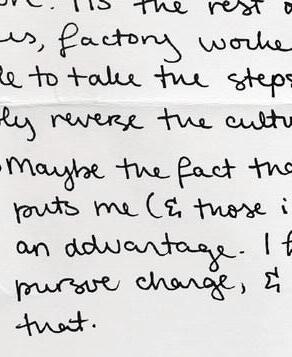 the rest
es, factory worke
e to take the steps
ly reverse the cultu
Maybe the fact tha
puts me (& those i
an advantage. I f
pursue change, &
that.